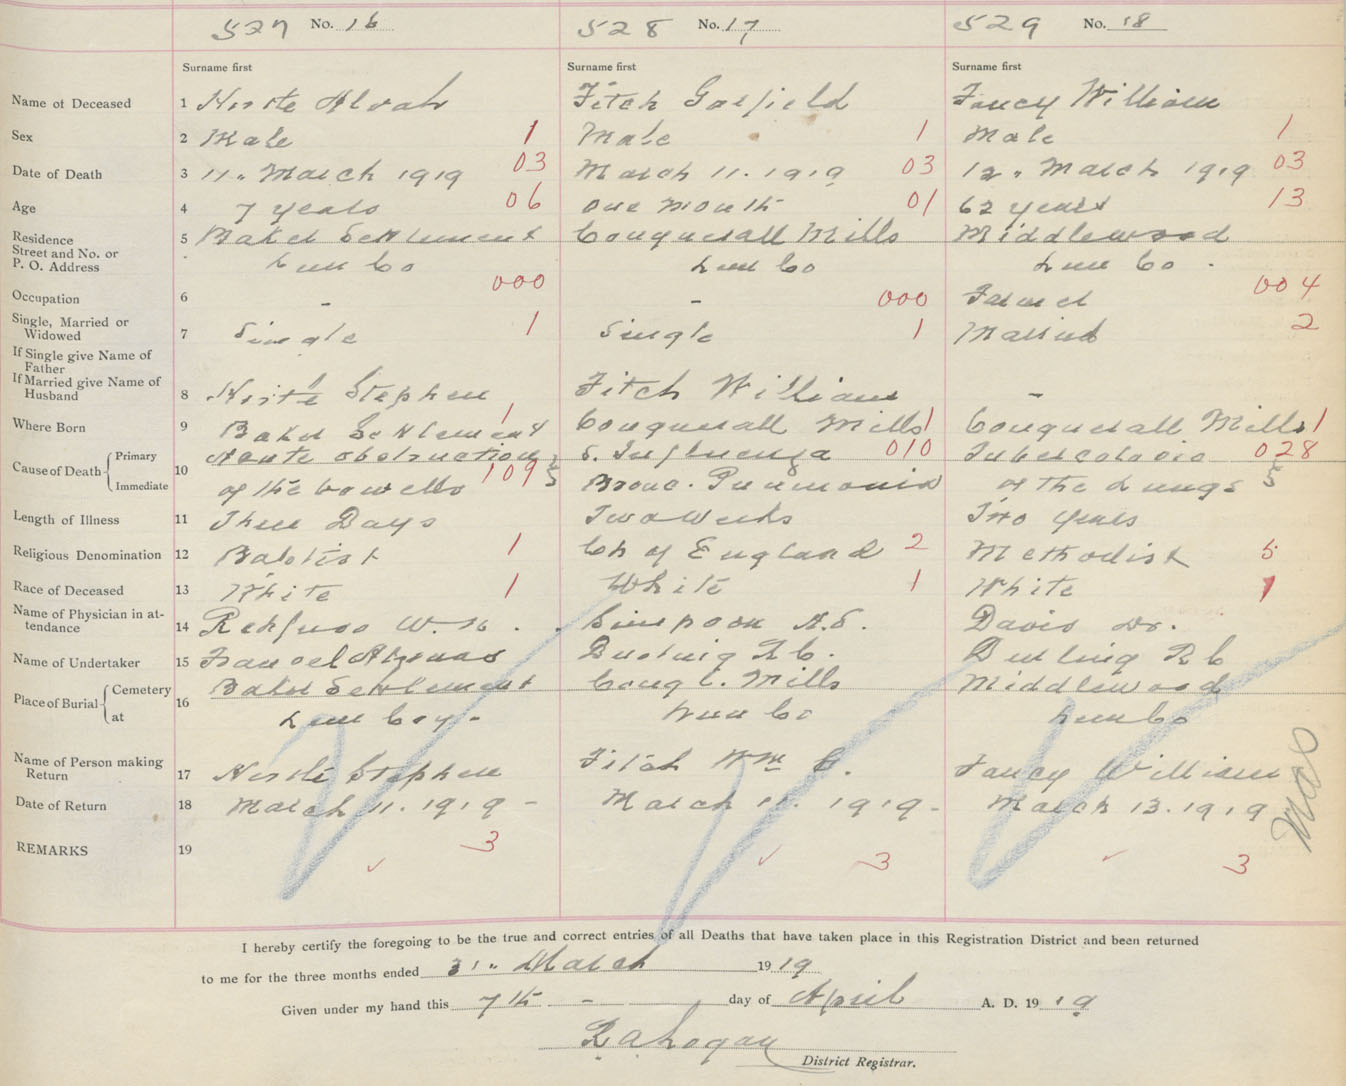 527 No. 16 528 No. 17 529 No. 18
Surname first Surname first Surname first
Name of Deceased 1 Alvah Fitch Garfield Fancy William
Sex 2 Male 1 Male 1 Male 1
Date of Death 3 11. March 1919 03 March 11. 1919 03 12. March 1919 03
Age 4 7 years 06 one month 01 62 years 13
Residence 5 Baker Settlement Conquerall Mills Middlewood
Street and No. or
P. O. Address Lun Co Lun Co Lun Co.
Occupation 6 - 000 - 000 Farmer 004
Single, Married or
Widowed 7 Single 1 Single 1 Married 2
If Single give Name of
Father
If Married give Name of
Husband 8 Stephen Fitch William -
Where Born 9 Baker Settlement 1 Conquerall Mills 1 Conquerall Mills 1
Cause of Death Primary 10 Acute obstruction S. Influenza 010 Tuberculosis 028
Immediate of the bowells 109 Bronc. Pneumonia of the Lungs
Length of Illness 11 Three Days Two Weeks Two years
Religious Denomination 12 Babtist 1 Ch of England 2 Methodist 5
Race of Deceased 13 White 1 White 1 White 1
Name of Physician in at-
tendance 14 Rehfuss W. N. Simpson A.S. Davis Dr.
Name of Undertaker 15 R C. R C
Place of Burial Cemetery 16 Baker Settlement Conq l. Mills Middlewood
at Lun Coy - Lun Co Lun Co
Name of Person making
Return 17 Stephen Fitch Wm C. Fancy William
Date of Return 18 March 11. 1919 - March 11. 1919 - March 13. 1919
REMARKS 19 3 3 3
I hereby certify the foregoing to be the true and correct entries of all Deaths that have taken place in this Registration District and been returned
to me for the three months ended 31. March 1919
Given under my hand this 7th - day of April A. D. 1919
R. A. Logan
District Registrar.